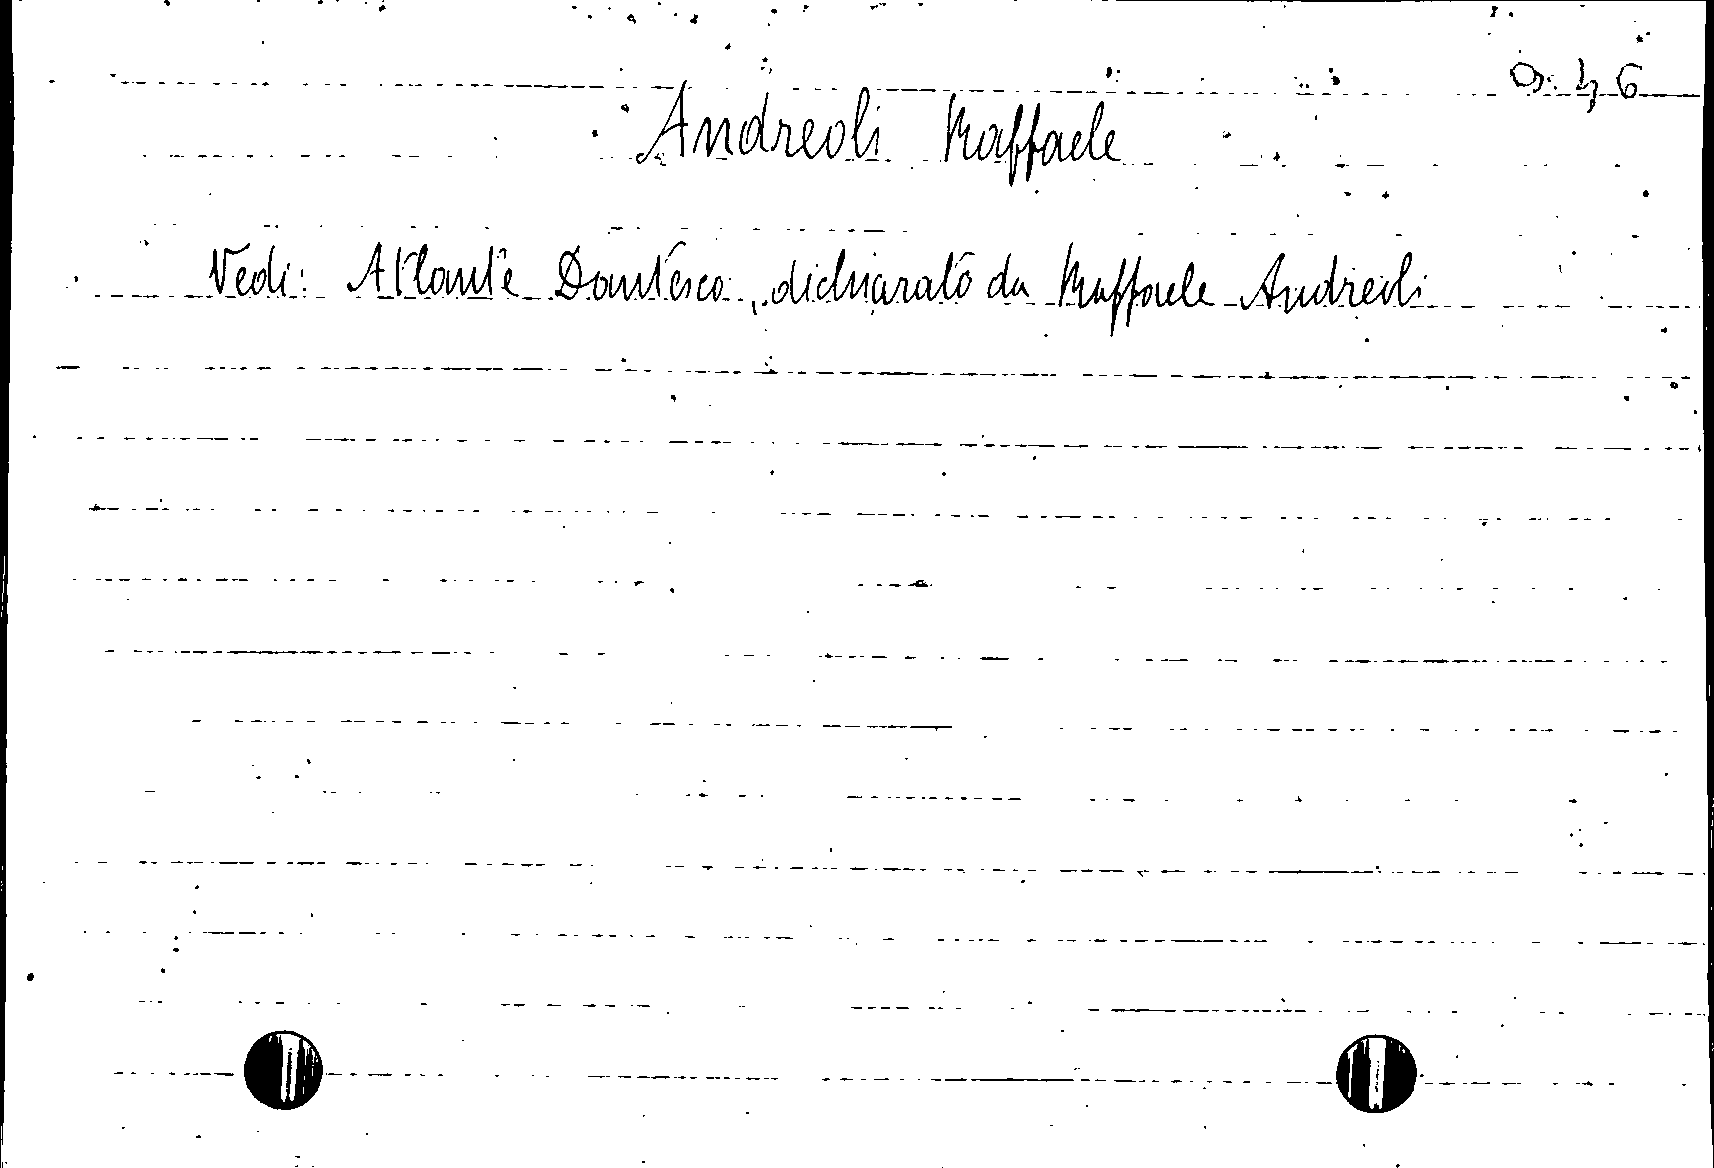 O. 4, 6
Andreoli Raffaele
Vedi: Atlante Dantesco, dichiarato da Raffaele Andreoli